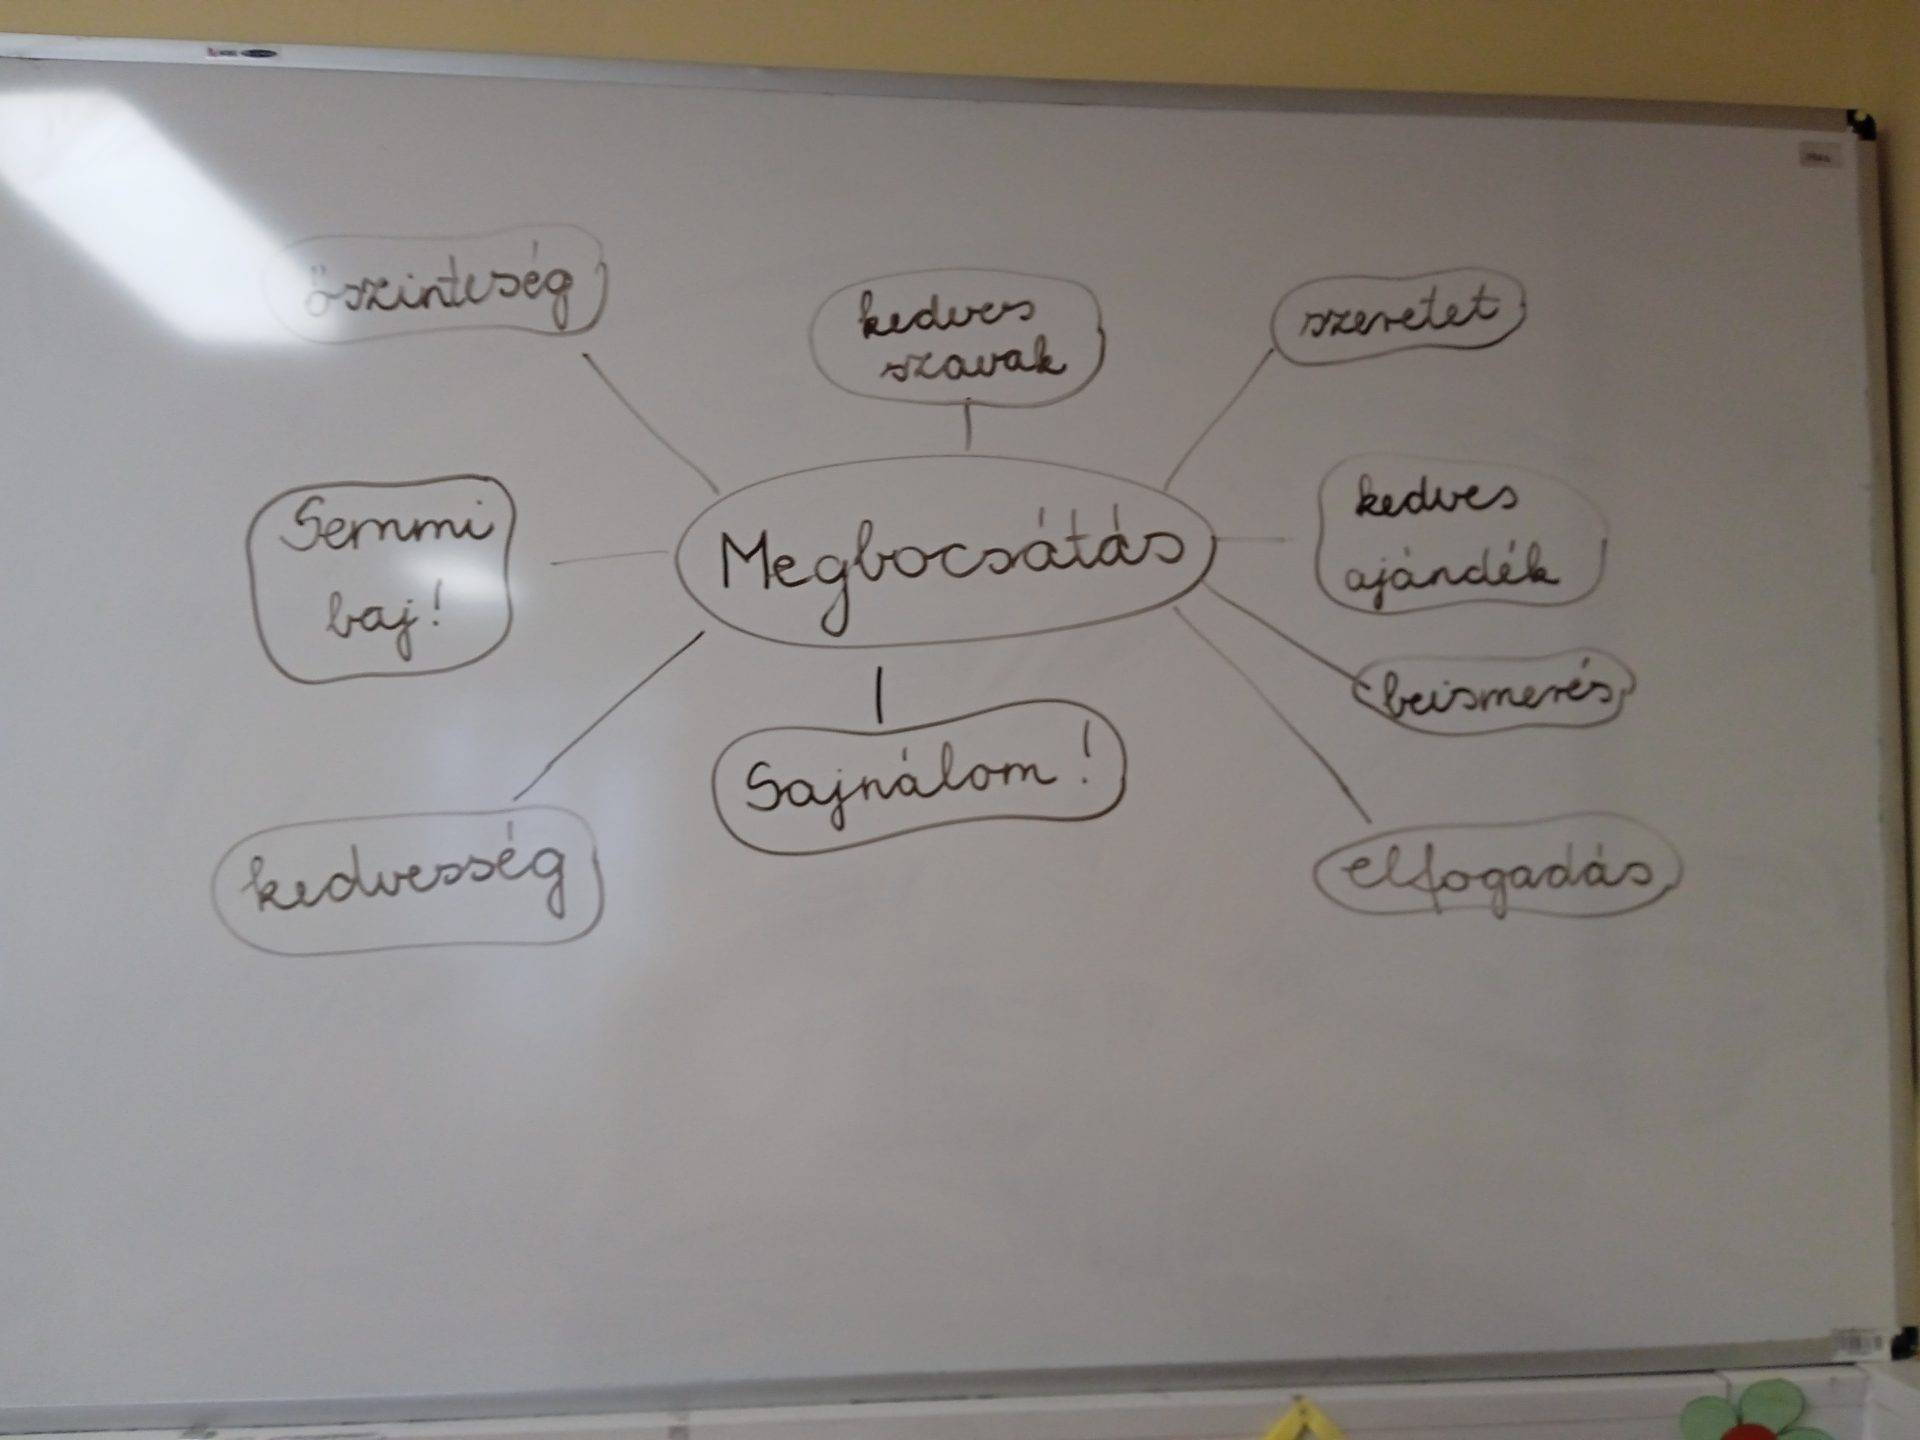 őszinteség
kedves
szavak
szeretet
Semmi
baj!
Megbocsátás
kedves
ajándék
beismerés
Sajnálom!
kedvesség
elfogadás